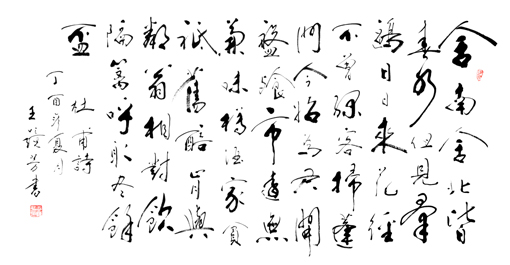 舍南舍北皆
春水但見羣
鷗日日來花徑
不曾緣客掃蓬
門今始為君開
盤飧市遠無
兼味樽酒家貧
祇舊醅肯與
鄰翁相對飲
隔籬呼取盡餘
盃
杜甫詩
丁酉年夏月
王芳書